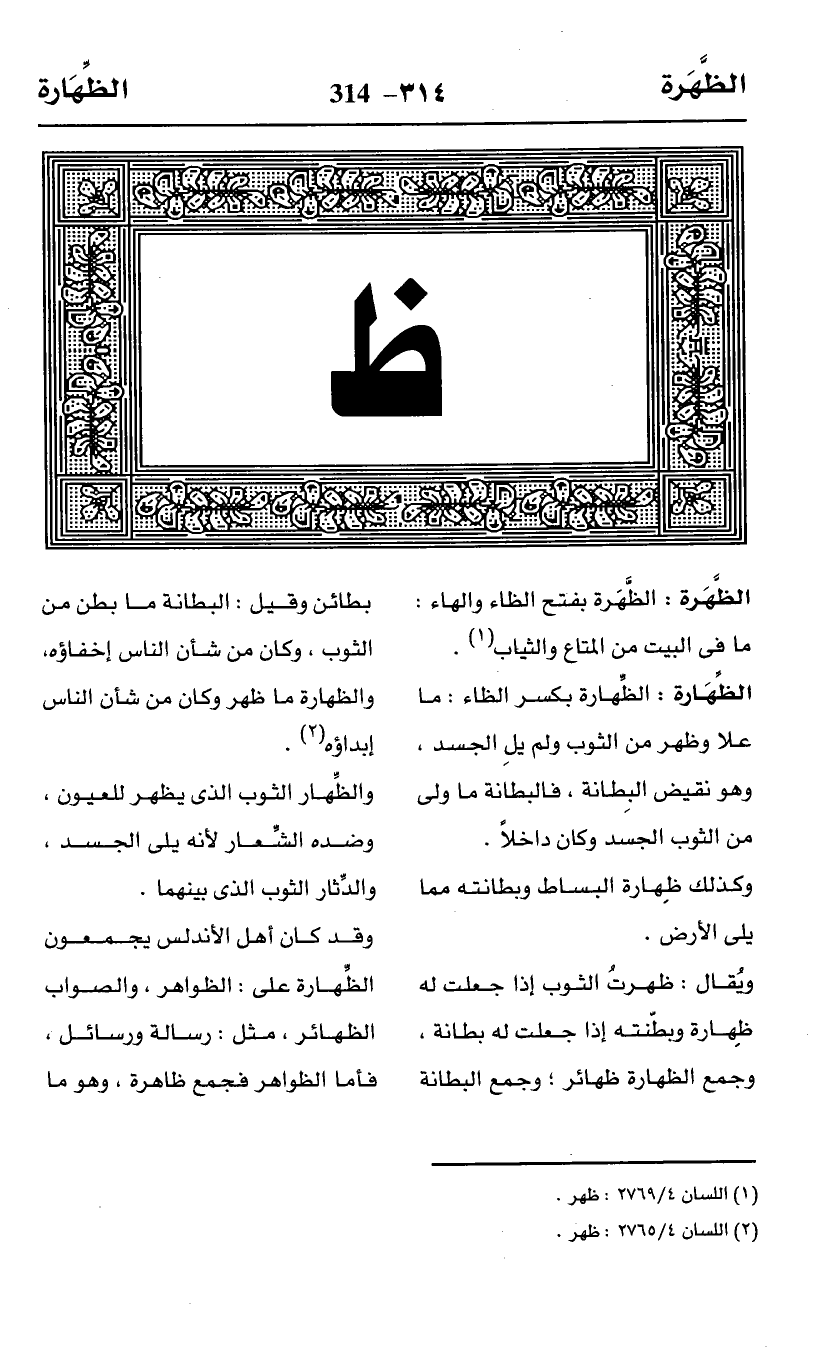 الظَّهَرة
٣١٤- 314
الظِّهَارة
ظ
الظَّهَرة : الظَّهَرة بفتح الظاء والهاء :
ما فى البيت من المتاع والثياب(١) .
الظِّهَارة : الظِّهارة بكسر الظاء : ما
علا وظهر من الثوب ولم يلِ الجسد ،
وهو نقيض البِطانة ، فالبطانة ما ولى
من الثوب الجسد وكان داخلاً .
وكذلك ظِهارة البساط وبطانته مما
يلى الأرض .
ويُقال : ظهرتُ الثوب إذا جعلت له
ظِهارة وبطّنته إذا جعلت له بطانة ،
وجمع الظهارة ظهائر ؛ وجمع البطانة
بطائن وقيل : البطانة ما بطن من
الثوب ، وكان من شأن الناس إخفاؤه،
والظهارة ما ظهر وكان من شأن الناس
إبداؤه(٢) .
والظِّهار الثوب الذى يظهر للعيون ،
وضده الشِّعار لأنه يلى الجسد ،
والدِّثار الثوب الذى بينهما .
وقد كان أهل الأندلس يجمعون
الظِّهارة على : الظواهر ، والصواب
الظهائر ، مثل : رسالة ورسائل ،
فأما الظواهر فجمع ظاهرة ، وهو ما
(١) اللسان ٢٧٦٩/٤ : ظهر .
(٢) اللسان ٢٧٦٥/٤ : ظهر .